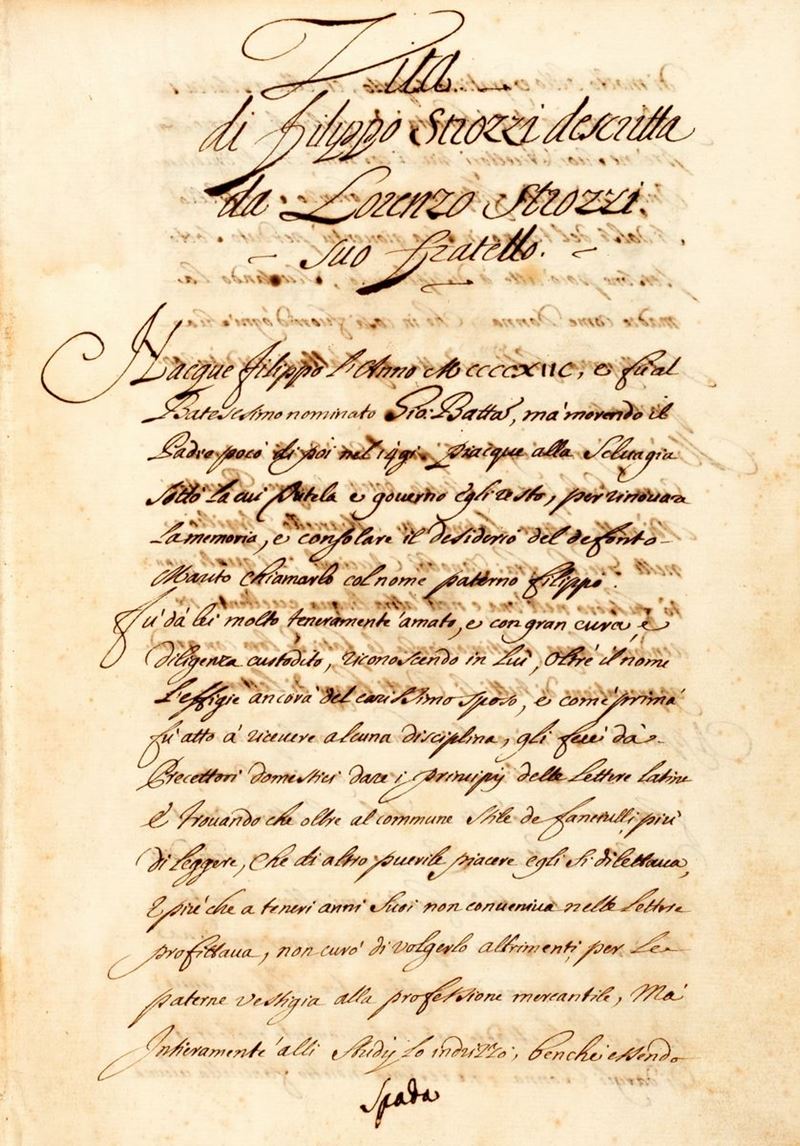 Vita
di Filippo Strozzi descritta
da Lorenzo Strozzi.
suo fratello.
Nacque Filippo l'Anno MCCCCXIIC, e fù al
Batesesimo nominato Gio: Batta, mà morendo il
Padre poco di poi nel 1491. Piacque alla Seluagia
sotto la cui Tutela e governo egli restò, per rinouare
la memoria, e consolare il desiderio del defonto
Marito chiamarlo col nome paterno Filippo.
Fù dà lei molto teneramente amato, e con gran cura, e
diligenza custodito, riconoscendo in lui, oltre il nome
l'effigie ancora del carissimo sposo, e come prima
fù atto à riceuere alcuna disciplina, gli fece dà
Precettori domestici dare i principij delle Lettere latine
è trouando che oltre al commune stile de fanciulli, più
di leggere, che di altro puerile piacere egli si dilettaua,
e più che a teneri anni suoi non conueniua nelle Lettere
profittaua, non curò di volgerlo altrimenti per le
paterne vestigia alla professione mercantile, Mà
Intieramente alli studij lo indrizzò, benche essendo
spada